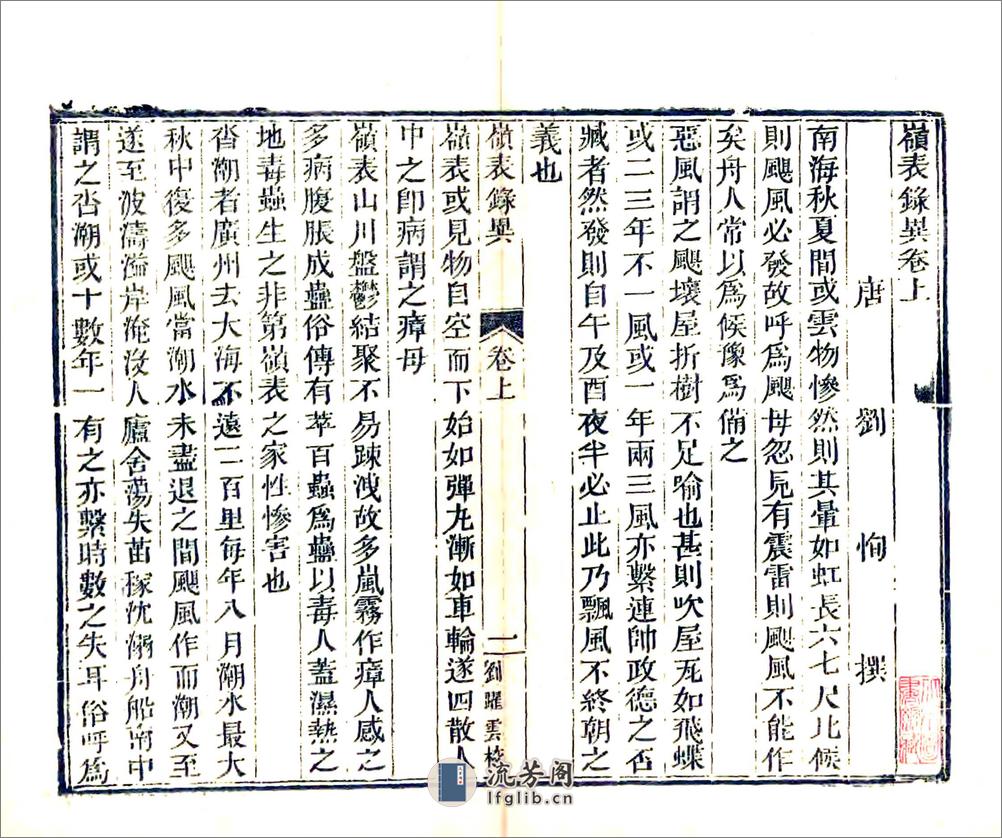 嶺表錄異卷上
唐劉恂撰
南海秋夏間或雲物慘然則其暈如虹長六七尺比候
則颶風必發故呼爲颶母忽見有震雷則颶風不能作
矣舟人常以爲候豫爲備之
惡風謂之颶壞屋折樹不足喻也甚則吹屋瓦如飛蝶
或二三年不一風或一年兩三風亦繫連帥政德之否
臧者然發則自午及酉夜半必止此乃飄風不終朝之
義也
嶺表錄異 卷上 一 劉躍雲校
嶺表或見物自空而下始如彈丸漸如車輪遂四散人
中之卽病謂之瘴母
嶺表山川盤鬱結聚不易踈洩故多嵐霧作瘴人感之
多病腹脹成蠱俗傳有萃百蟲爲蠱以毒人蓋濕熱之
地毒蟲生之非第嶺表之家性慘害也
沓潮者廣州去大海不遠二百里每年八月潮水最大
秋中復多颶風當潮水未盡退之間颶風作而潮又至
遂至波濤溢岸淹沒人廬舍蕩失苗稼沈溺舟船南中
謂之沓潮或十數年一有之亦繫時數之失耳俗呼爲
流芳阁
lfglib.cn